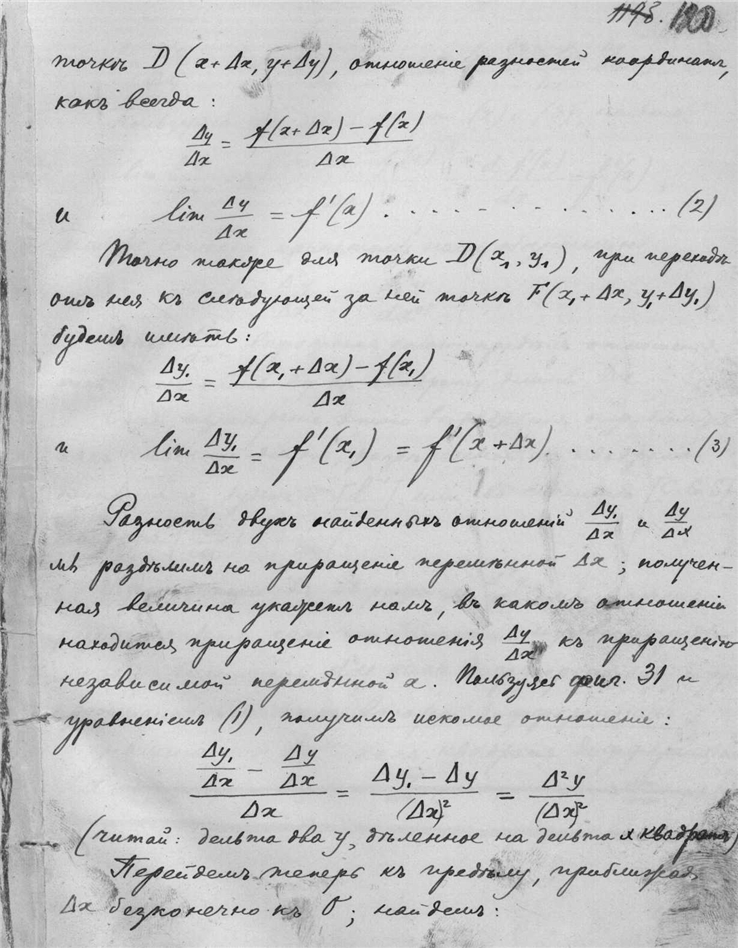 120
точкѣ D (x+Δx, y+Δy), отношеніе разностей координатъ,
какъ всегда:
Δy/Δx = (f(x+Δx) − f(x))/Δx
и lim Δy/Δx = f'(x) . . . . . . . . . . . . . . (2)
Точно также для точки D(x₁, y₁), при переходѣ
отъ нея къ слѣдующей за ней точкѣ F(x₁+Δx, y₁+Δy₁)
будемъ имѣть:
Δy₁/Δx = (f(x₁+Δx) − f(x₁))/Δx
и lim Δy₁/Δx = f'(x₁) = f'(x+Δx) . . . . . . . . (3)
Разность двухъ найденныхъ отношеній Δy₁/Δx и Δy/Δx
мы раздѣлимъ на приращеніе перемѣнной Δx; получен-
ная величина укажетъ намъ, въ какомъ отношеніи
находится приращеніе отношенія Δy/Δx къ приращенію
независимой перемѣнной x. Пользуясь фиг. 31 и
уравненіемъ (1), получимъ искомое отношеніе:
(Δy₁/Δx − Δy/Δx)/Δx = (Δy₁ − Δy)/(Δx)² = Δ²y/(Δx)²
(читай: дельта два y, дѣленное на дельта x квадратъ)
Перейдемъ теперь къ предѣлу, приближая
Δx безконечно къ 0; найдемъ: